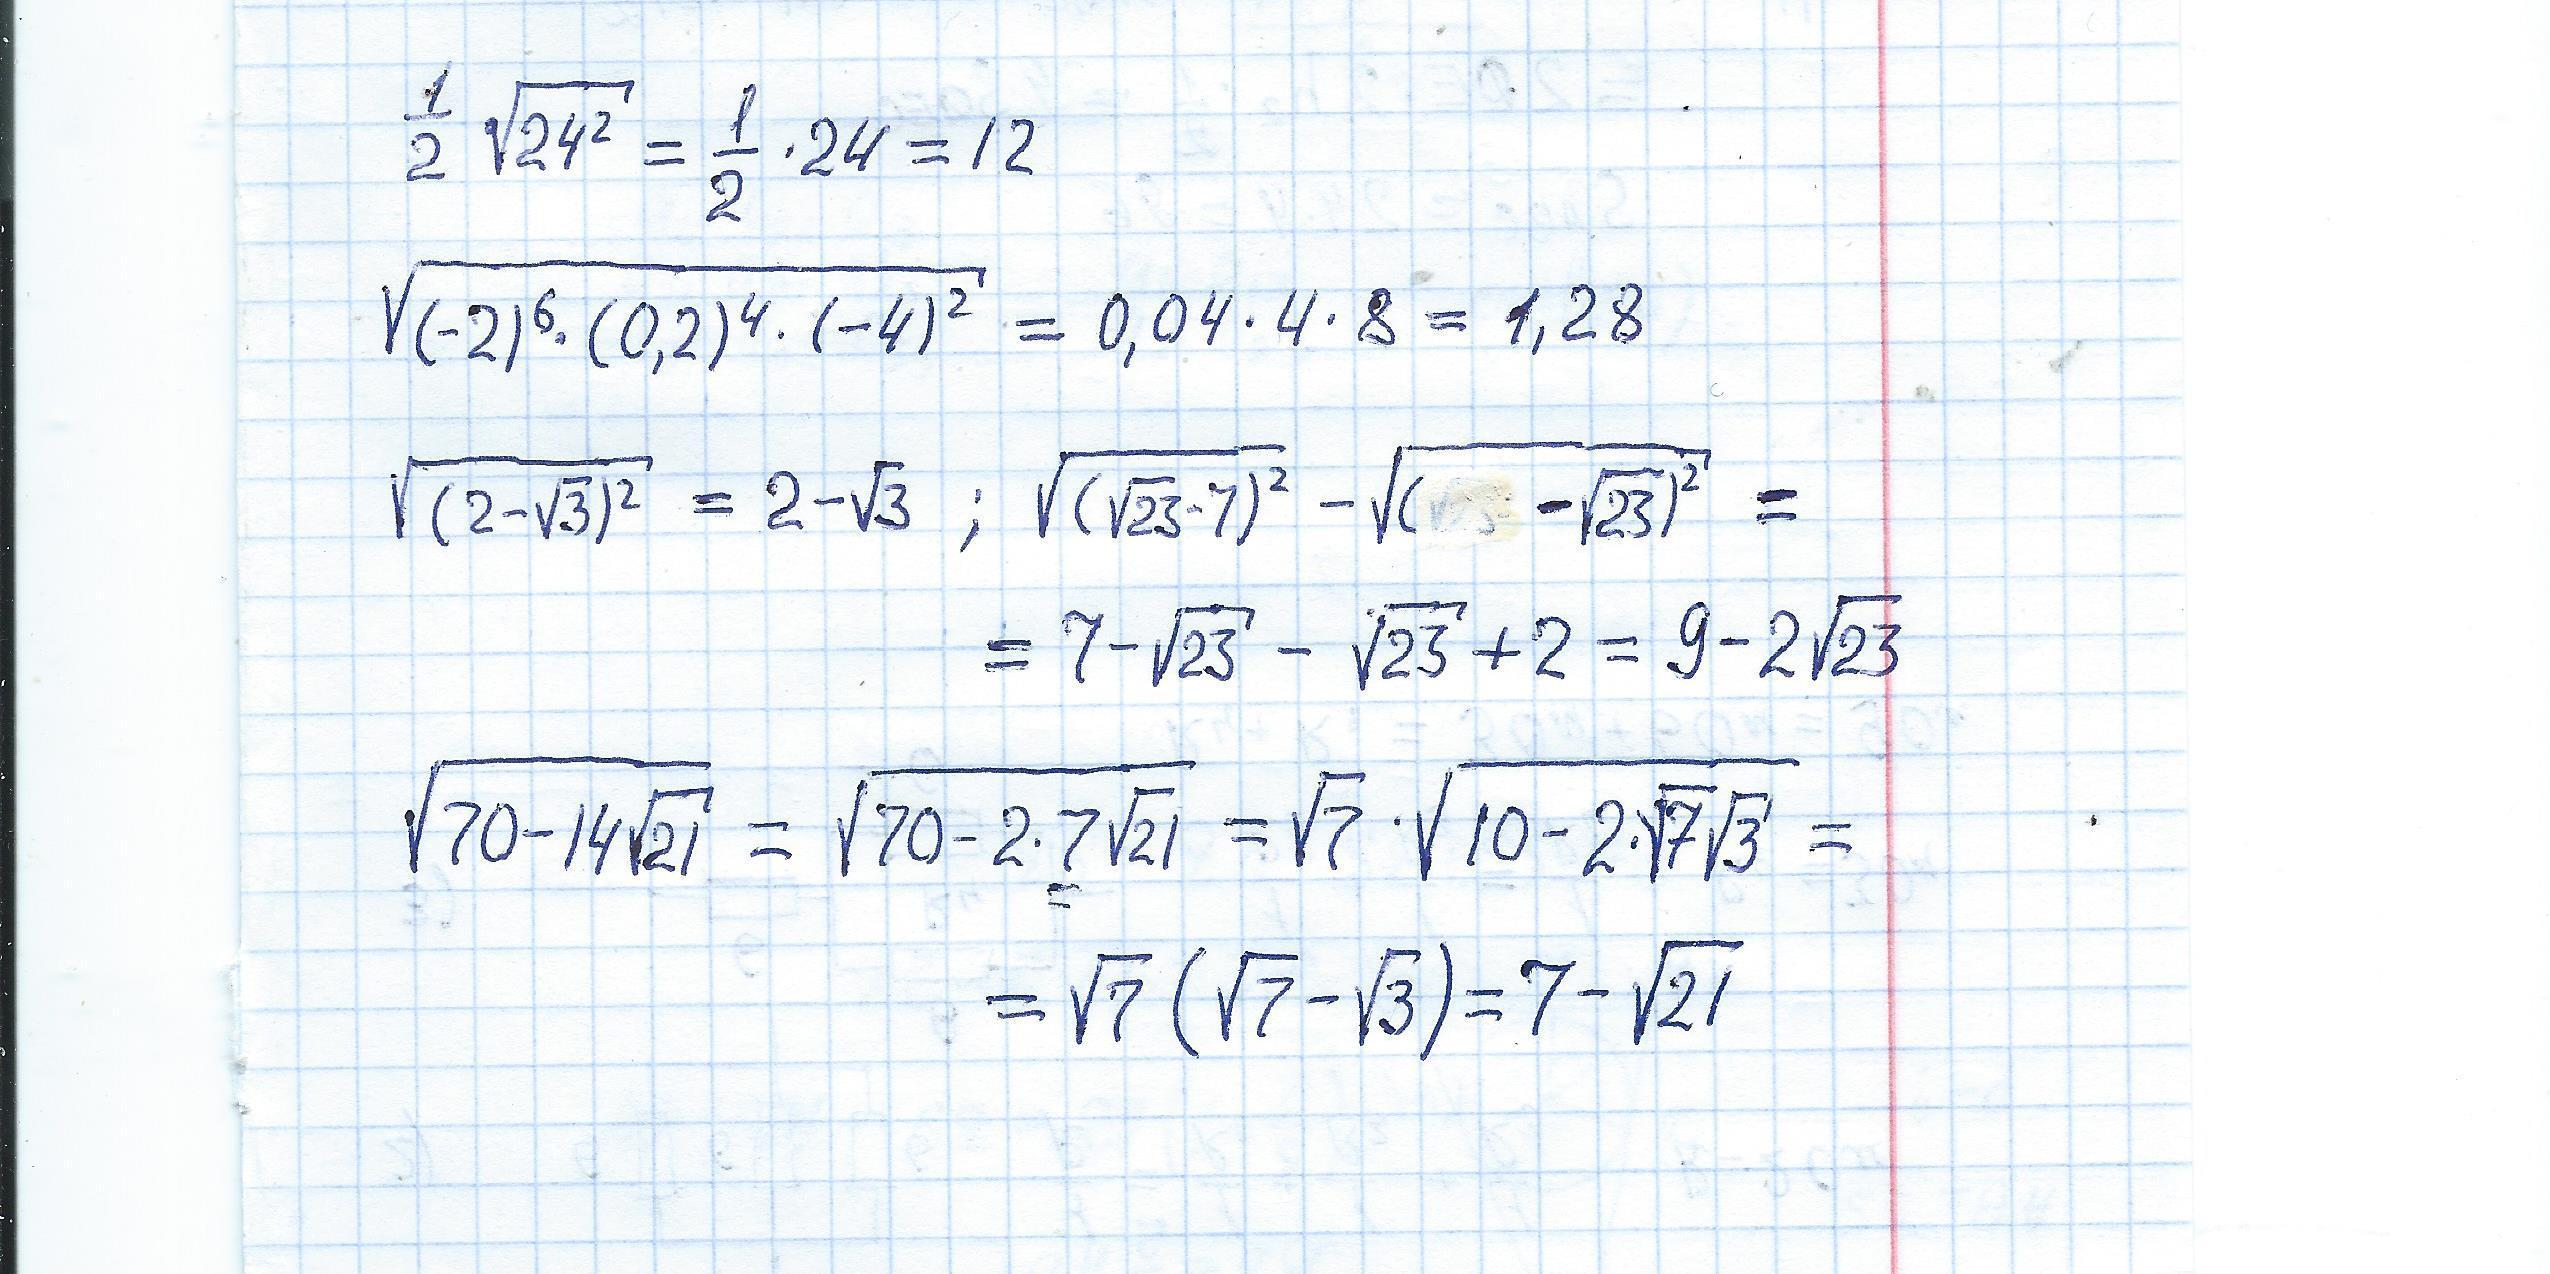 1/2 √24² = 1/2 · 24 = 12
√(-2)⁶ · (0,2)⁴ · (-4)² = 0,04 · 4 · 8 = 1,28
√(2-√3)² = 2-√3 ; √(√23-7)² - √( -√23)² =
= 7-√23 - √23 + 2 = 9-2√23
√70-14√21 = √70-2·7√21 = √7 · √10-2·√7√3 =
= √7 (√7-√3) = 7-√21